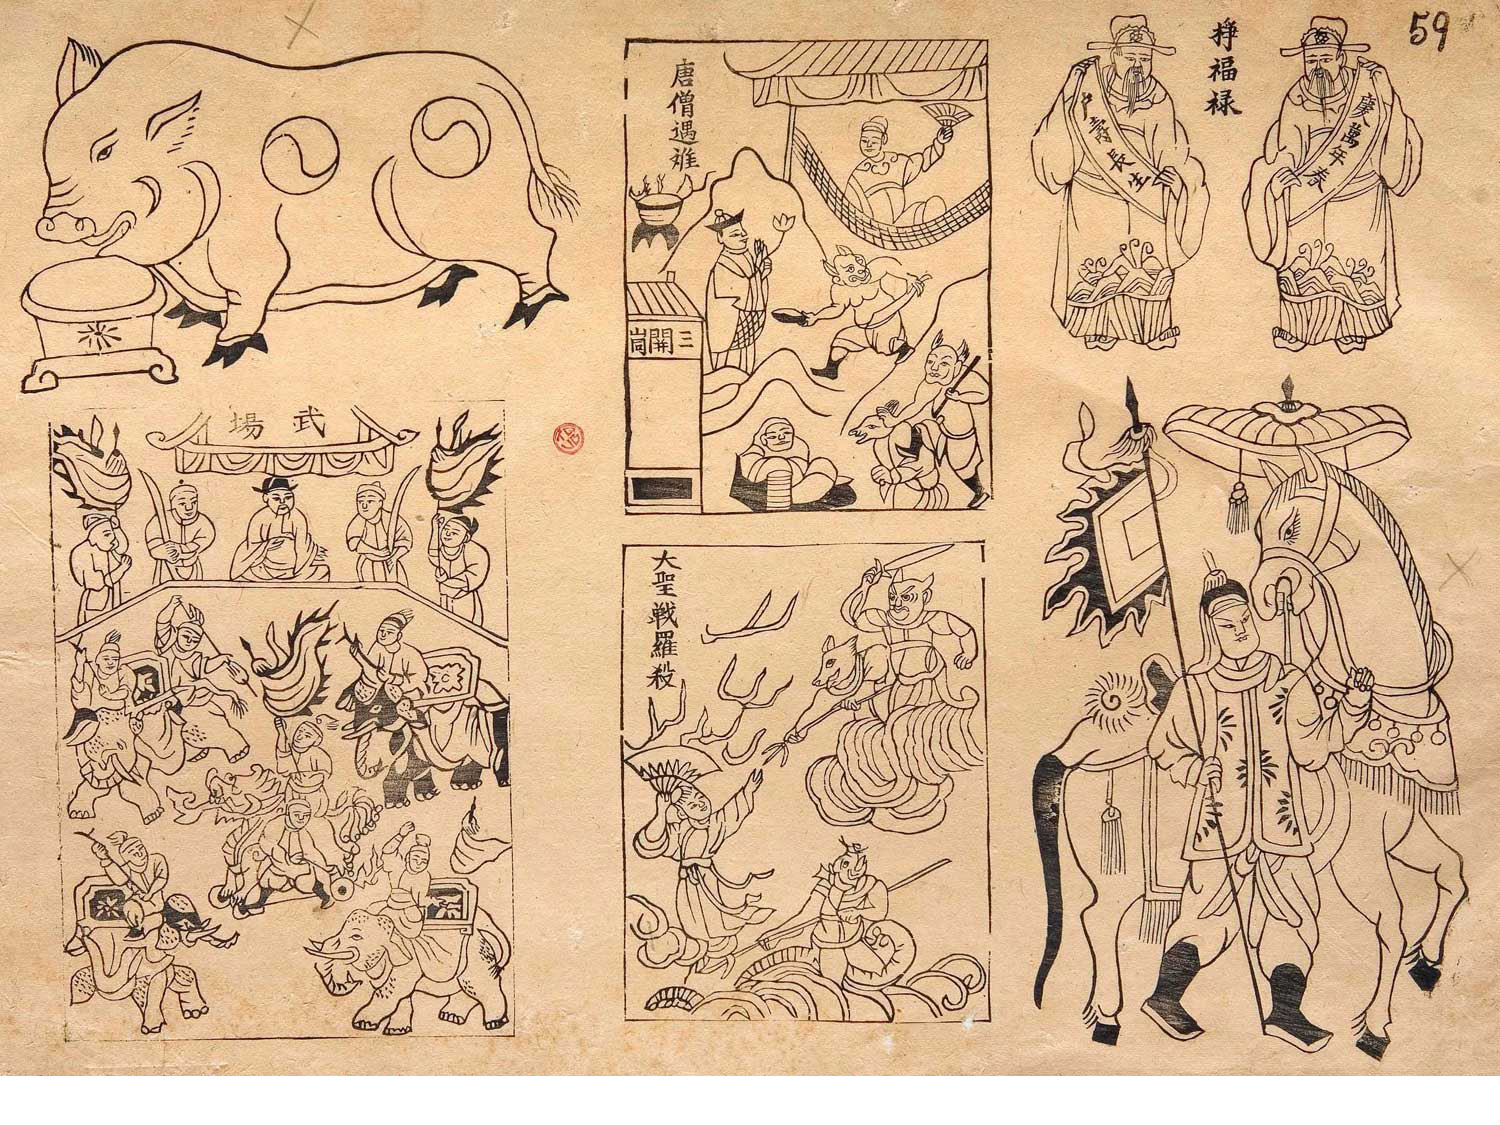 59
唐僧遇难
三開洞
掙福禄
壽長生
慶萬年春
武場
大聖戰羅殺